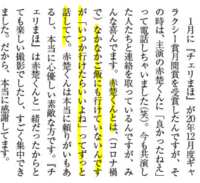 1月に『チェリまほ』が20年12月度ギャ
ラクシー賞月間賞を受賞したんですが、そ
の時は、主演の赤楚くんに「良かったねえ」
って電話しちゃいました(笑)。今も共演し
た人たちと連絡を取っているんですが、み
んな喜んでます。赤楚くんとは、(コロナ禍
で)なかなかご飯にも行けていないんです
が「いつか行けたらいいよね」ってずっと
話してて。赤楚くんは本当に頼りがいもあ
るし、本当に心優しい素敵な方です。『チ
ェリまほ』は赤楚くんと一緒だったからと
ても楽しい撮影でしたし、すごく集中でき
ました。だから、本当に感謝してます。